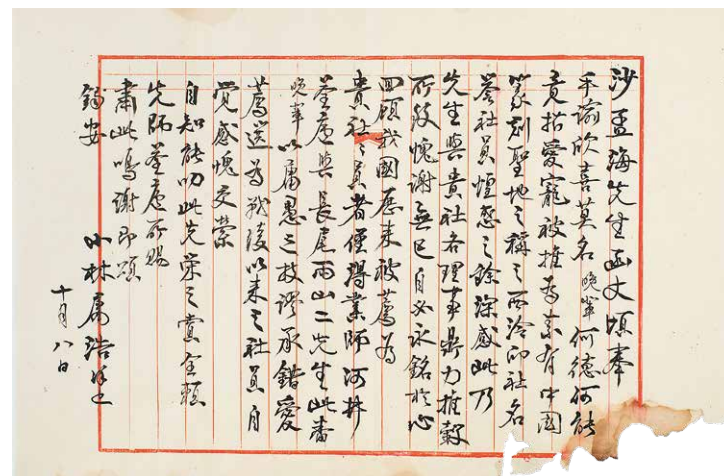 沙孟海先生函丈頃奉
手諭欣喜莫名晚輩何德何能
竟招愛寵被推為素有中國
篆刻聖地之稱之西泠印社名
譽社員惶之餘深感此乃
先生與貴社各理事鼎力推轂
所致愧謝無已自必永銘於心
回顧我國歷來被薦為
貴社々員者僅得業師河井
荃廬與長尾雨山二先生此番
晚輩以庸愚之故謬承錯愛
薦選為戰後以來之社員自
覺感愧交縈
自知能叨此光榮之賞全賴
先師荃廬所賜
肅此鳴謝即頌
鐫安
小林庸浩
十月八日